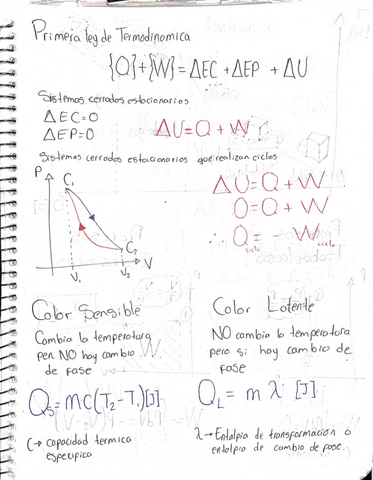 Primera ley de Termodinamica
{Q}+{W}=ΔEC+ΔEP+ΔU
Sistemas cerrados estacionarios
ΔEC=0
ΔEP=0
ΔU=Q+W
Sistemas cerrados estacionarios que realizan ciclos
P
C₁
C₂
V₁
V₂
V
ΔU=Q+W
0=Q+W
∴ Q ciclo = -W ciclo
Calor Sensible
Cambia la temperatura
pero NO hay cambio
de fase
Qs=mc(T₂-T₁)[J]
C→ capacidad termica
especifica
Calor Latente
NO cambia la temperatura
pero si hay cambio de
fase
QL = m λ [J]
λ→ Entalpia de transformación o
entalpia de cambio de fase.